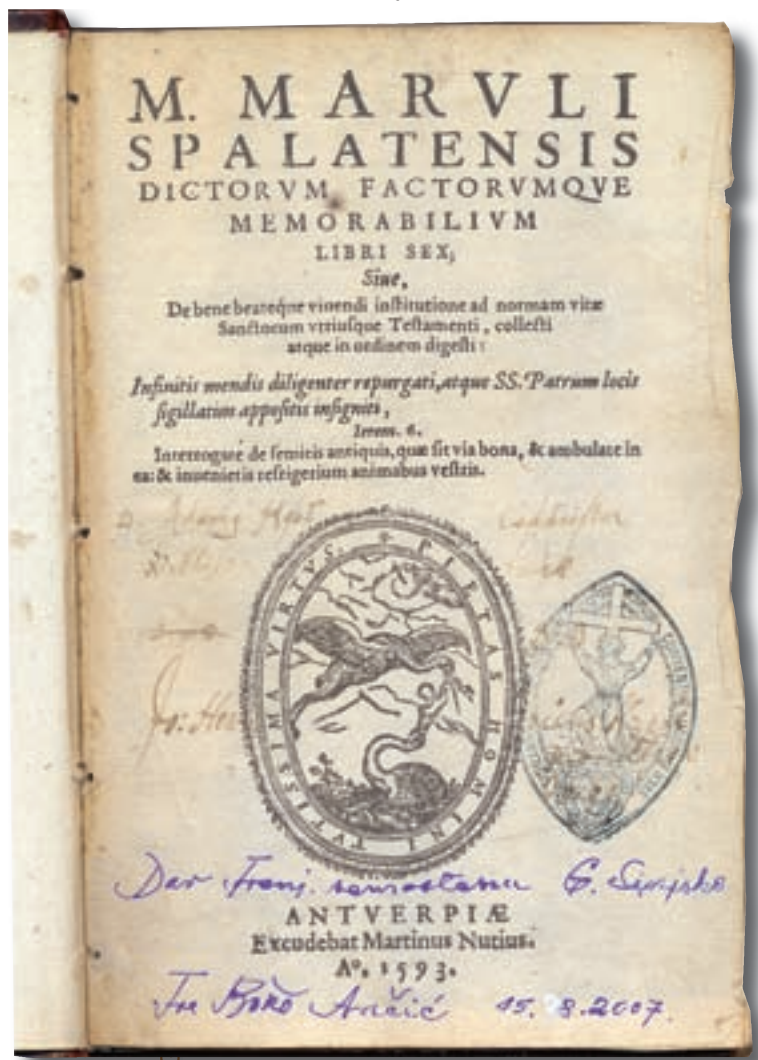 M. MARVLI
SPALATENSIS
DICTORVM FACTORVMQVE
MEMORABILIVM
LIBRI SEX,
Siue,
De bene beateque viuendi institutione ad normam vitæ
Sanctorum vtriusque Testamenti, collecti
atque in ordinem digesti:
Infinitis mendis diligenter repurgati, atque SS. Patrum locis
sigillatim appositis insigniti,
Ierem. 6.
Interrogate de semitis antiquis, quæ sit via bona, & ambulate in
ea: & inuenietis refrigerium animabus vestris.
PIETAS HOMINI TVTISSIMA VIRTVS.
Dar Franj. samostanu
ANTVERPIÆ
Excudebat Martinus Nutius.
Aº. 1593.
Fra Božo Ančić 15. 8. 2007.